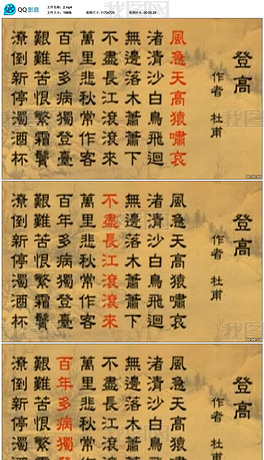 QQ影音
文件名称: 2.mp4
登高
作者 杜甫
風急天高猿嘯哀
渚清沙白鳥飛迴
無邊落木蕭蕭下
不盡長江滾滾來
萬里悲秋常作客
百年多病獨登臺
艱難苦恨繁霜鬢
潦倒新停濁酒杯
登高
作者 杜甫
風急天高猿嘯哀
渚清沙白鳥飛迴
無邊落木蕭蕭下
不盡長江滾滾來
萬里悲秋常作客
百年多病獨登臺
艱難苦恨繁霜鬢
潦倒新停濁酒杯
登高
作者 杜甫
風急天高猿
渚清沙白鳥
無邊落木蕭
不盡長江滾
萬里悲秋常
百年多病獨
艱難苦恨繁
潦倒新停濁